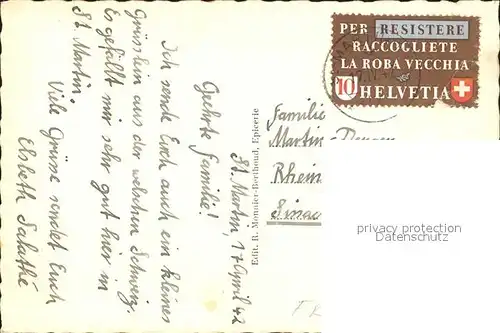 St. Martin, 17 April 42
Geehrte Familie!
Ich sende Euch auch ein kleines
Grüsslein aus der welschen Schweiz.
Es gefällt mir sehr gut hier in
St. Martin.
Viele Grüsse sendet Euch
Elsbeth Salathé
Edit. R. Monnier-Berthoud, Epicerie
PER RESISTERE
RACCOGLIETE
LA ROBA VECCHIA
10 HELVETIA
Familie
Martin
Rhein
Sissac
privacy protection
Datenschutz